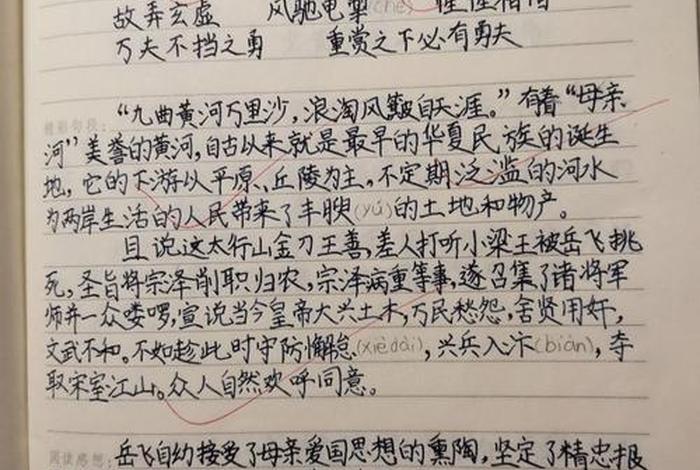 故弄玄虚 风驰电掣(chè) 惺惺相惜
万夫不挡之勇 重赏之下必有勇夫
精彩句段:
“九曲黄河万里沙,浪淘风簸自天涯。”有着“母亲
河”美誉的黄河,自古以来就是最早的华夏民族的诞生
地,它的下游以平原、丘陵为主,不定期泛滥的河水
为两岸生活的人民带来了丰腴(yú)的土地和物产。
且说这太行山金刀王善,差人打听小梁王被岳飞挑
死,圣旨将宗泽削职归农,宗泽病重等事,遂召集了诸将军
师并一众喽啰,宣说当今皇帝大兴土木,万民愁怨,舍贤用奸,
文武不和。不如趁此时守防懈怠(xièdài),兴兵入汴(biàn),夺
取宋室江山。众人自然欢呼同意。
阅读感想:
岳飞自幼接受了母亲爱国思想的熏陶,坚定了精忠报